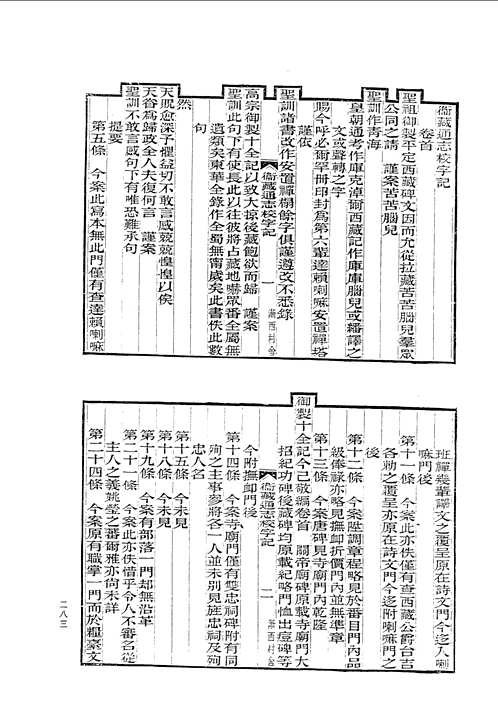 衞藏通志校字記
卷首
聖祖御製平定西藏碑文因而允從拉藏苦苦腦兒羣眾
公同之請　謹案苦苦腦兒
聖訓作青海
皇朝通考作庫克淖爾西藏記作庫庫腦兒或繙譯之
文或聲轉之字
賜今呼必爾罕冊印封為第六輩達賴喇嘛安置禪塔
謹依
聖訓諸書改作安置禪榻餘字俱謹遵改不悉錄
衞藏通志校字記　一　漸西村舍
高宗御製十全記以致大掠後藏飽欲而歸　謹案
聖訓此句下有使長此以往彼將占藏地嚇眾番全蜀無
遺類矣東華全錄作全蜀無甯歲矣此書佚此數
句
然
天貺愈深予懼益切不敢言感兢兢惶惶以俟
天咨為歸政全人夫復何言　謹案
聖訓不敢言感句下有唯恐難承句
提要
第五條　今案此寫本無此門僅有查達賴喇嘛
班禪幾輩譯文之覆呈原在詩文門今迻入喇
嘛門後
第十一條　今案此亦佚僅有查西藏公爵台吉
各勅之覆呈亦原在詩文門今迻附喇嘛門之
後
第十二條　今案陞調章程略見於番目門內品
級俸祿亦略見撫卹折價門內並無準章
第十三條　今案唐碑見寺廟門內乾隆
御製十全記今已敬編卷首　關帝廟碑原載寺廟門大
招紀功碑後藏碑均原載紀略門惟出痘碑等
今附撫卹門後
衞藏通志校字記　二　漸西村舍
第十四條　今案寺廟門僅有雙忠祠碑附有同
殉之主事參將各一人並未別見旌忠祠及殉
忠人名
第十五條　今未見
第十八條　今未見
第十九條　今案有部落一門却無沿革
第二十一條　今案此亦佚惜乎令人不審名從
主人之義姚瑩之番爾雅亦尚未詳
第二十四條　今案原有職掌一門而於糧臺文
二八三